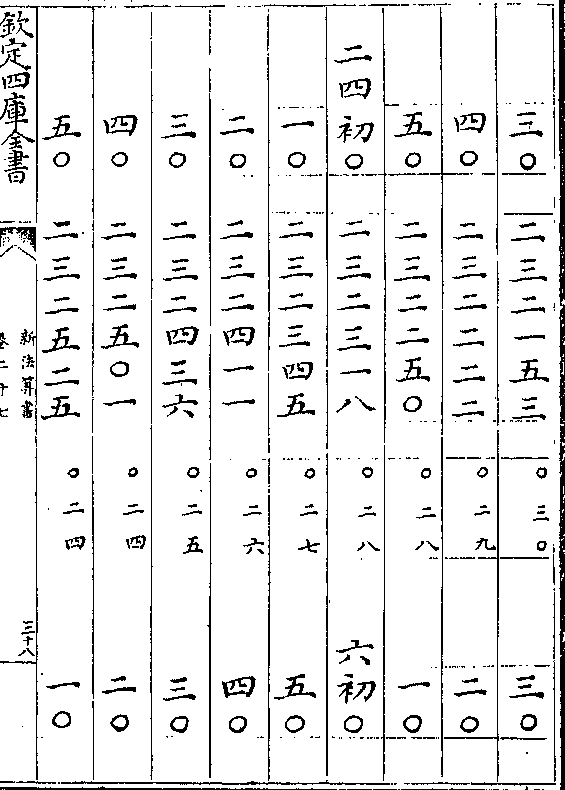 三〇 二三二一五三 〇三〇 三〇
四〇 二三二二二二 〇二九 二〇
五〇 二三二二五〇 〇二八 一〇
二四初〇 二三二三一八 〇二八 六初〇
一〇 二三二三四五 〇二七 五〇
二〇 二三二四一一 〇二六 四〇
三〇 二三二四三六 〇二五 三〇
四〇 二三二五〇一 〇二四 二〇
五〇 二三二五二五 〇二四 一〇
欽定四庫全書
新法算書
卷二十七
三十八